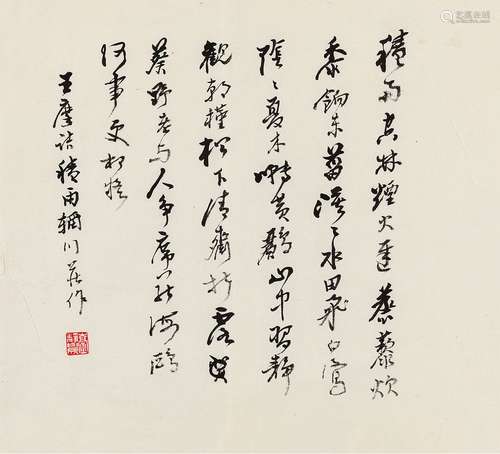 積雨空林煙火遲蒸藜炊
黍餉東菑漠〻水田飛白鷺
陰〻夏木囀黃鸝山中習靜
觀朝槿松下清齋折露
葵野老与人爭席罷海鷗
何事更相疑
王摩詰積雨輞川莊作